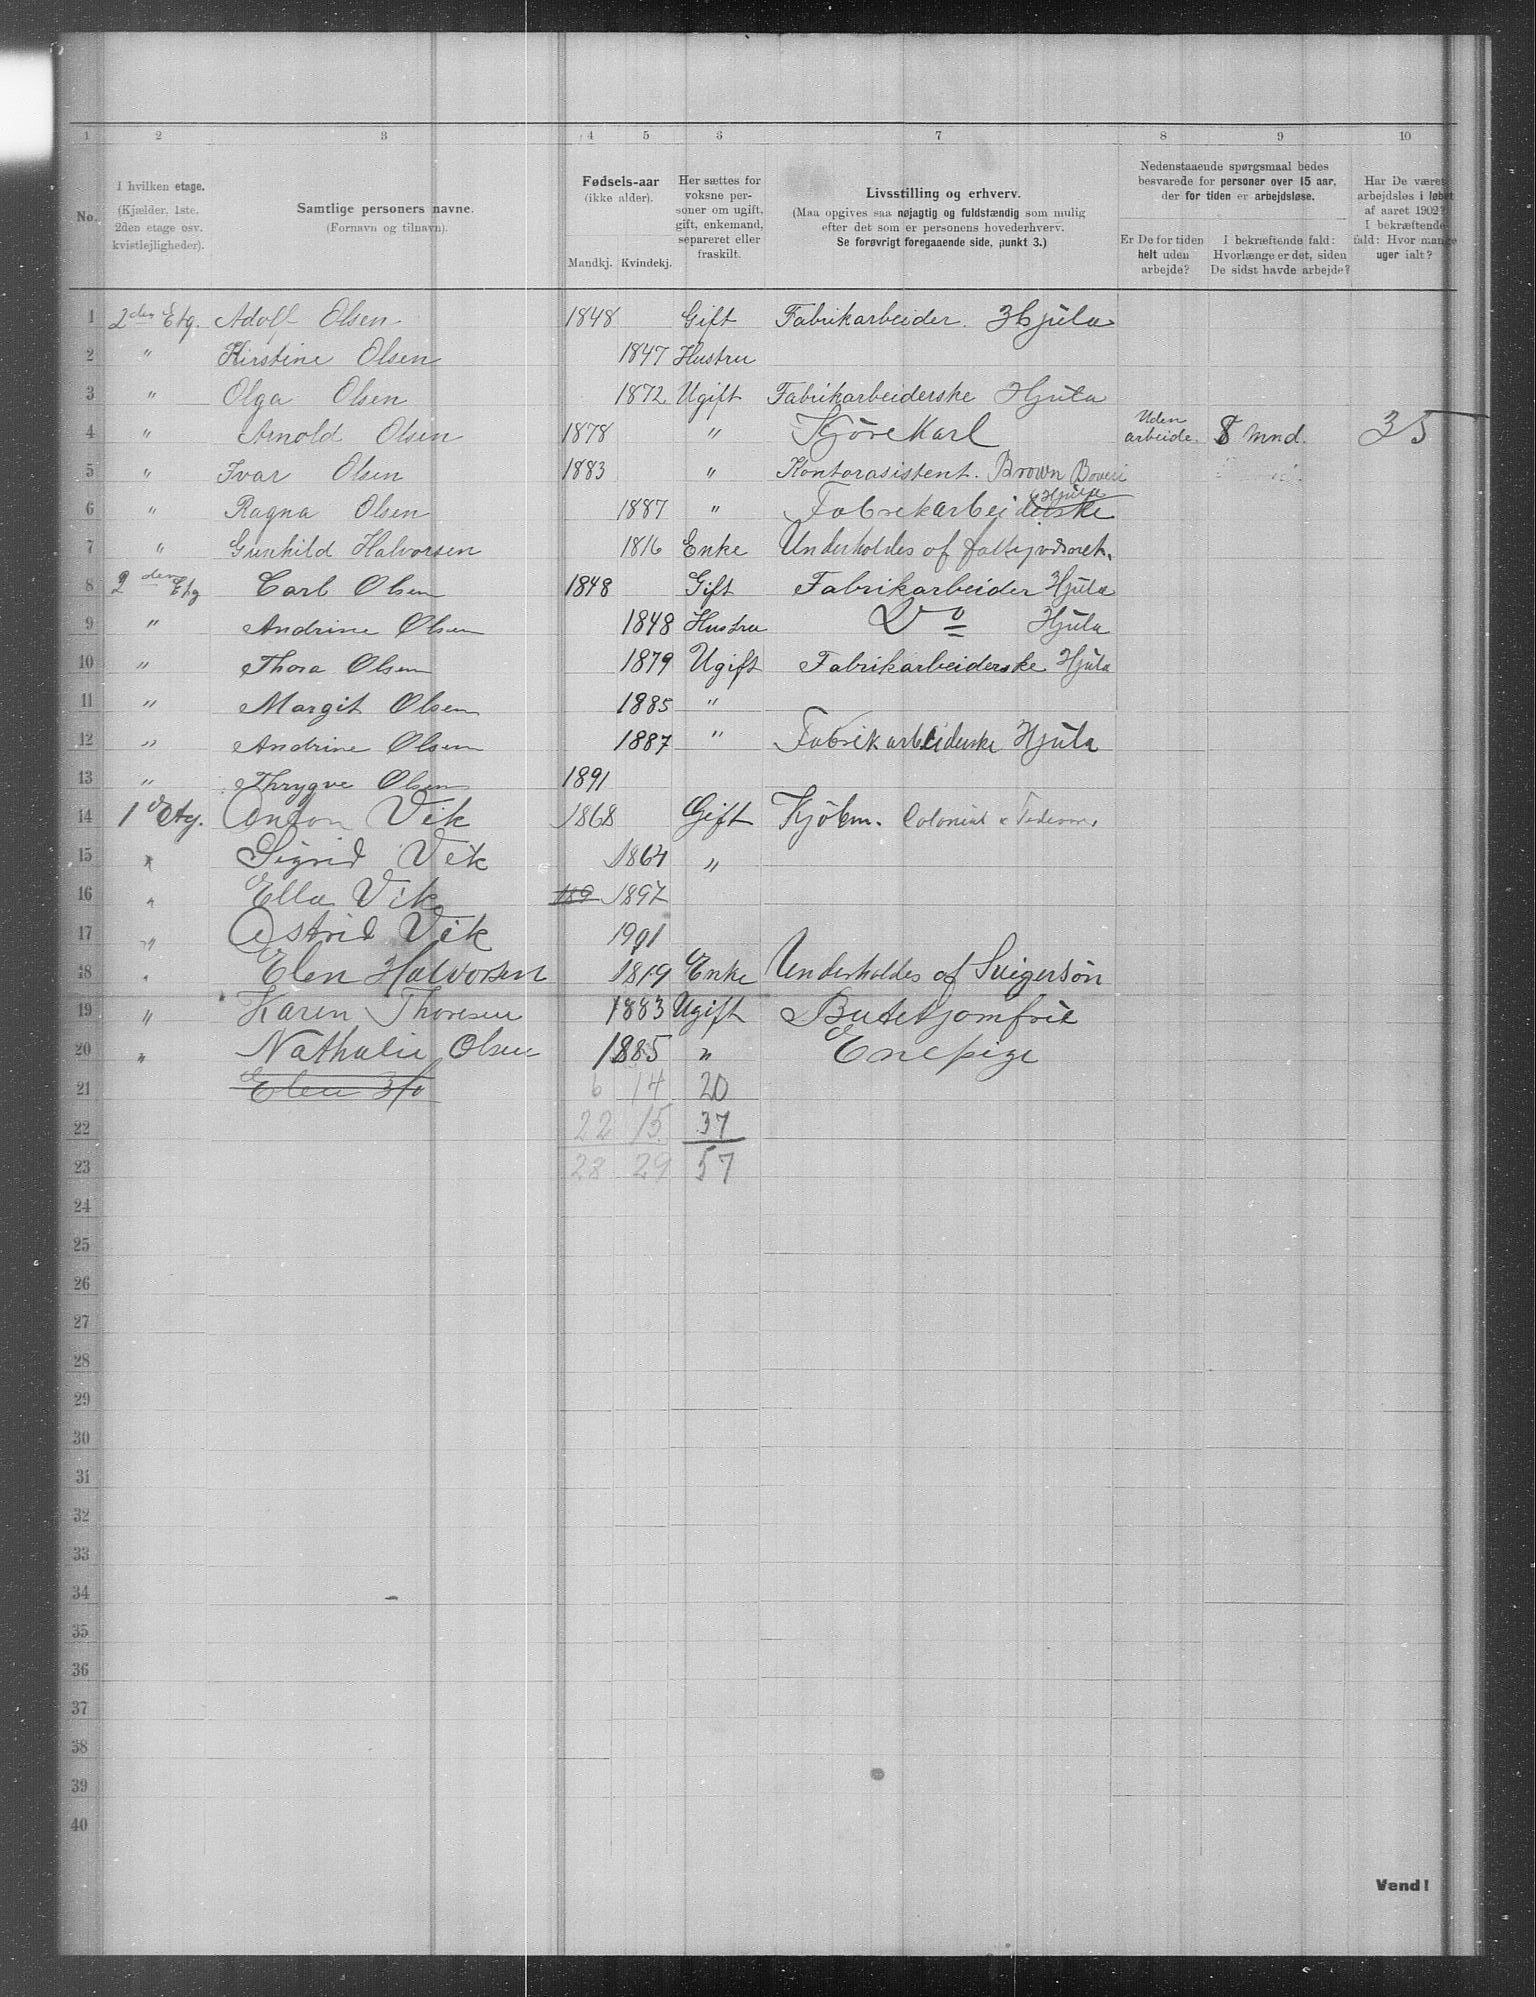 1 2 3 4 5 6 7 8 9 10
No.
I hvilken etage.
(Kjælder, 1ste,
2den etage osv.
kvistlejligheder).
Samtlige personers navne.
(Fornavn og tilnavn).
Fødsels-aar
(ikke alder).
Mandkj. Kvindekj.
Her sættes for
voksne per-
soner om ugift,
gift, enkemand,
separeret eller
fraskilt.
Livsstilling og erhverv.
(Maa opgives saa nøjagtig og fuldstændig som mulig
efter det som er personens hovederhverv.
Se forøvrigt foregaaende side, punkt 3.)
Nedenstaaende spørgsmaal bedes
besvarede for personer over 15 aar,
der for tiden er arbejdsløse.
Er De for tiden
helt uden
arbejde?
I bekræftende fald:
Hvorlænge er det, siden
De sidst havde arbejde?
Har De været
arbejdsløs i løbet
af aaret 1902?
I bekræftende
fald: Hvor mange
uger ialt?
1 2den Etg. Adolf Olsen 1848 Gift Fabrikarbeider. Hjula
2 " Kirstine Olsen 1847 Hustru
3 " Olga Olsen 1872 Ugift Fabrikarbeiderske Hjula
4 " Arnold Olsen 1878 " Kjørekarl Uden arbeide. 8 mnd. 35
5 " Ivar Olsen 1883 " Kontorasistent. Brown Boveri
6 " Ragna Olsen 1887 " Fabrekarbeiderske Hjula
7 " Gunhild Halvorsen 1816 Enke Underholdes of
8 2den Etg Carl Olsen 1848 Gift Fabrikarbeider Hjula
9 " Andrine Olsen 1848 Hustru Do Hjula
10 " Thora Olsen 1879 Ugift Fabrikarbeiderske Hjula
11 " Margit Olsen 1885 "
12 " Andrine Olsen 1887 " Fabrikarbeiderske Hjula
13 " Thrygve Olsen 1891
14 1 Etg. Anton Vik 1868 Gift Kjøbm. Colonial
15 " Sigrid Vik 1864 "
16 " Ella Vik 189 1897
17 " Astrid Vik 1901
18 " Elen Halvorsen 1819 Enke Underholdes af Svigersøn
19 " Karen Thoresen 1883 Ugift Butekjomfrie
20 " Nathalie Olsen 1885 " Enepige
21 Elen Ha 6 14 20
22 22 15 37
23 28 29 57
24
25
26
27
28
29
30
31
32
33
34
35
36
37
38
39
40
Vend!